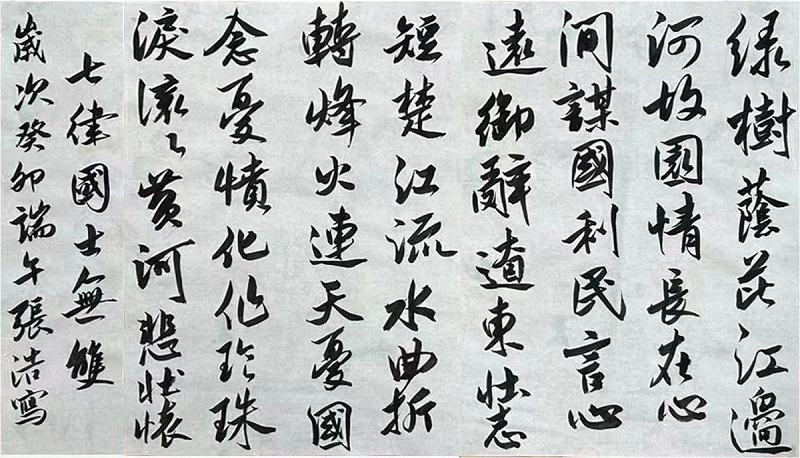 绿樹蔭芘江邊
河故園情長在心
间謀國利民言心
遠御辭遼東壯志
短楚江流水曲折
轉烽火連天憂國
念憂憤化作珍珠
淚滚々黄河悲壯懷
七律國士無雙
歲次癸卯端午張浩寫